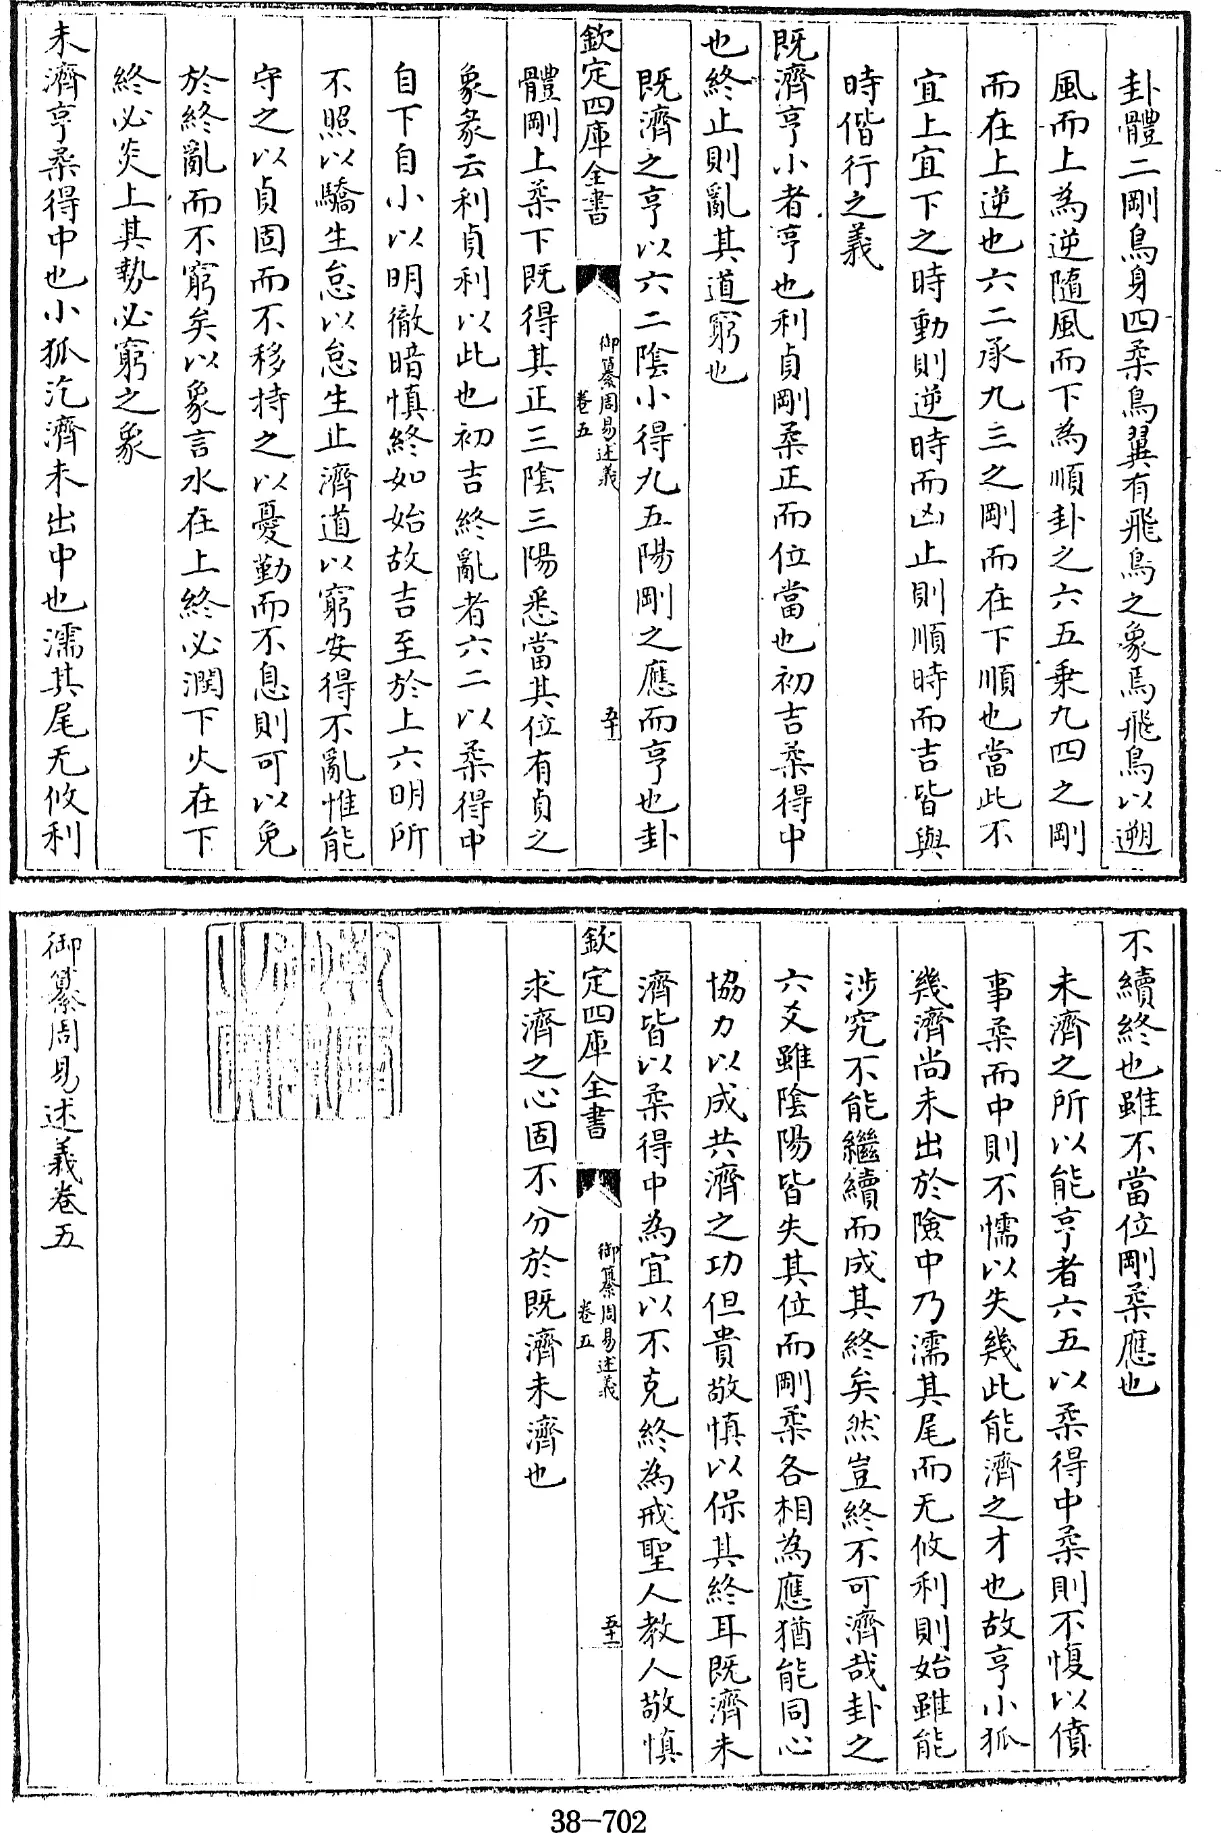 卦體二剛鳥身四柔鳥翼有飛鳥之象焉飛鳥以遡
風而上為逆隨風而下為順卦之六五乗九四之剛
而在上逆也六二承九三之剛而在下順也當此不
宜上宜下之時動則逆時而凶止則順時而吉皆與
時偕行之義
既濟亨小者亨也利貞剛柔正而位當也初吉柔得中
也終止則亂其道窮也
既濟之亨以六二陰小得九五陽剛之應而亨也卦
欽定四庫全書
御纂周易述義
卷五
五十
體剛上柔下既得其正三陰三陽悉當其位有貞之
象彖云利貞利以此也初吉終亂者六二以柔得中
自下自小以明徹暗慎終如始故吉至於上六明所
不照以驕生怠以怠生止濟道以窮安得不亂惟能
守之以貞固而不移持之以憂勤而不息則可以免
於終亂而不窮矣以象言水在上終必潤下火在下
終必炎上其勢必窮之象
未濟亨柔得中也小狐汔濟未出中也濡其尾无攸利
不續終也雖不當位剛柔應也
未濟之所以能亨者六五以柔得中柔則不愎以僨
事柔而中則不懦以失幾此能濟之才也故亨小狐
幾濟尚未出於險中乃濡其尾而无攸利則始雖能
涉究不能繼續而成其終矣然豈終不可濟哉卦之
六爻雖陰陽皆失其位而剛柔各相為應猶能同心
協力以成共濟之功但貴敬慎以保其終耳既濟未
濟皆以柔得中為宜以不克終為戒聖人教人敬慎
欽定四庫全書
御纂周易述義
卷五
五十一
求濟之心固不分於既濟未濟也
御纂周易述義卷五
38-702